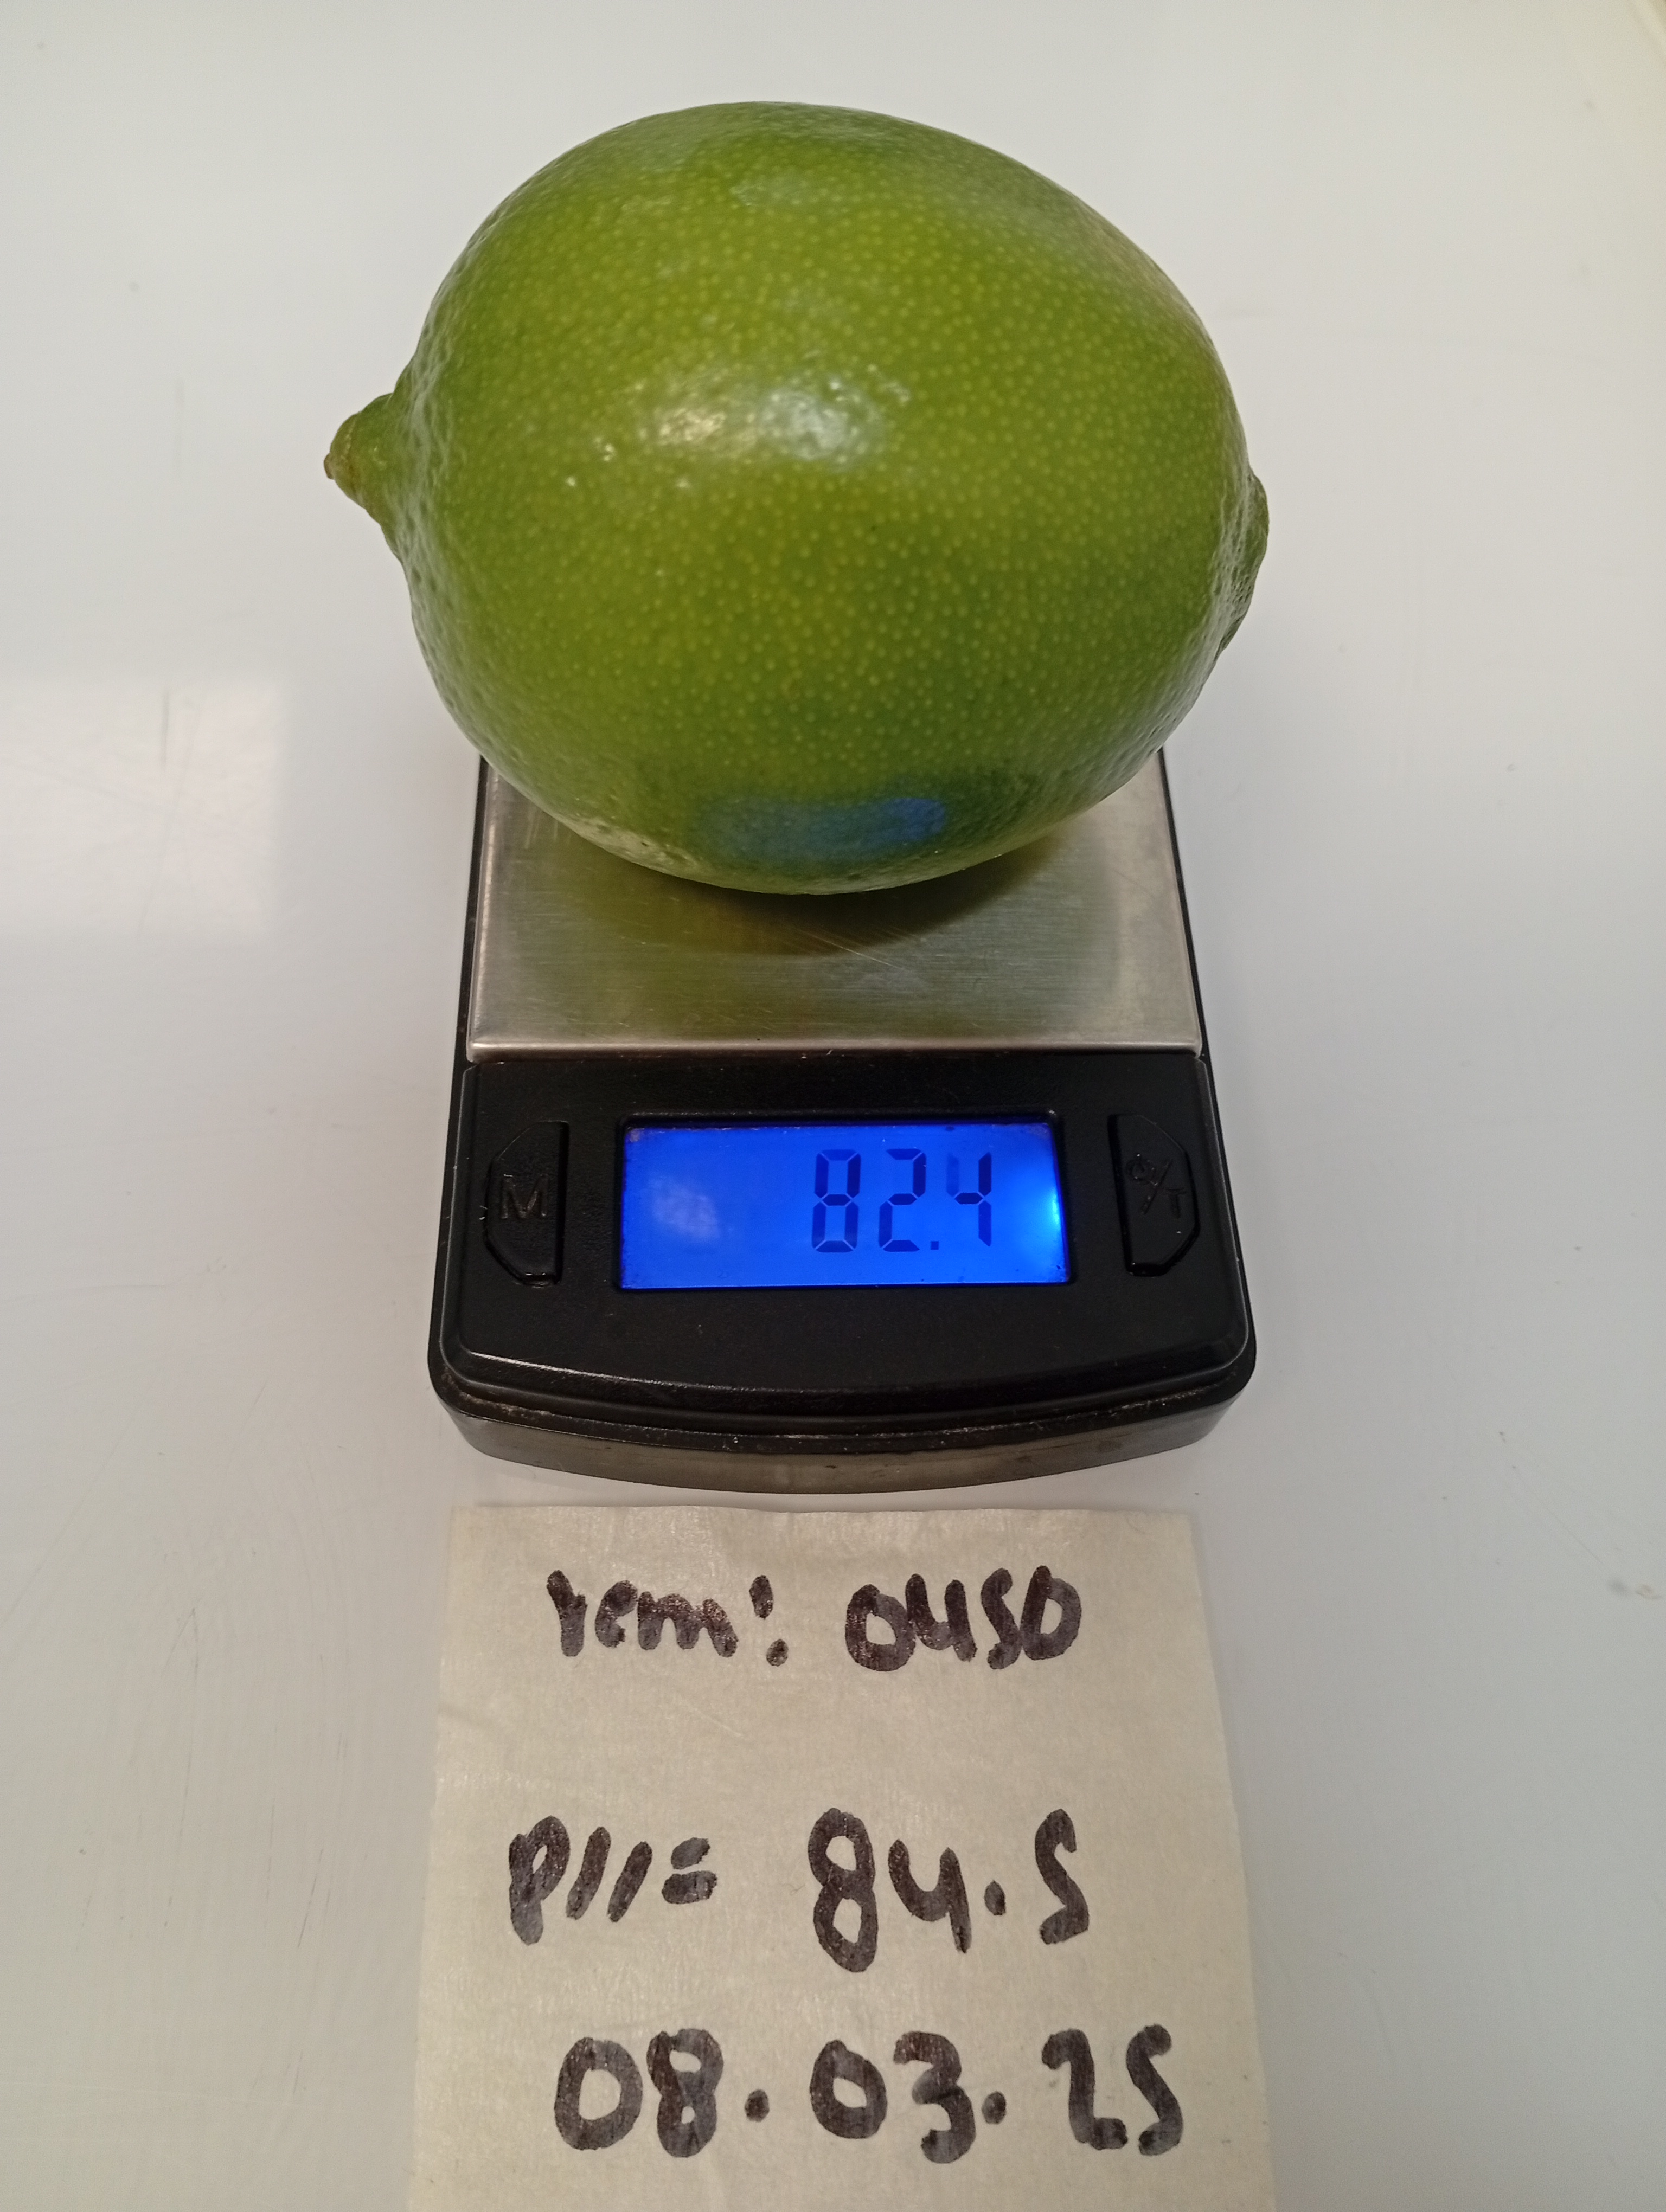 M
82.4
rem: 0450
P11= 84.5
08.03.25